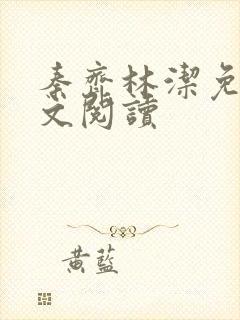 秦齊林潔免
文閱讀
黃藍